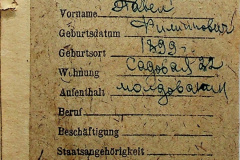 Vorname Павел
Geburtsdatum Филиппович
Geburtsort 1899.
Wohnung Садовая 32
Aufenthalt молдованин
Beruf
Beschäftigung
Staatsangehörigkeit